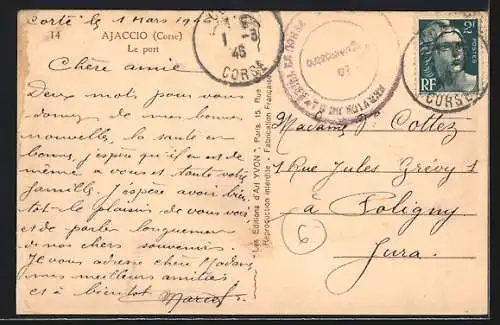 Corte le 1 Mars 1946
14 AJACCIO (Corse)
Le port
Chère amie
Deux mots pour vous
donner de mes bonnes
nouvelles, la santé en
bonne, j'espère qu'il en est de
même a vous et toute votre
famille. J'espère avoir bien
tot le plaisir de vous voir
et de parler longuement
de nos chers souvenirs.
Je vous adresse chère Madame
mes meilleurs amitiés
et à bientôt Marcel
"Les Editions d'Art YVON", Paris, 15, Rue
Reproduction interdite - Fabrication Française
1
46
CORSE
2F
POSTES
RF
CORSE
Madame Cottez
1 Rue Jules Grévy 1
à Poligny
Jura.
6